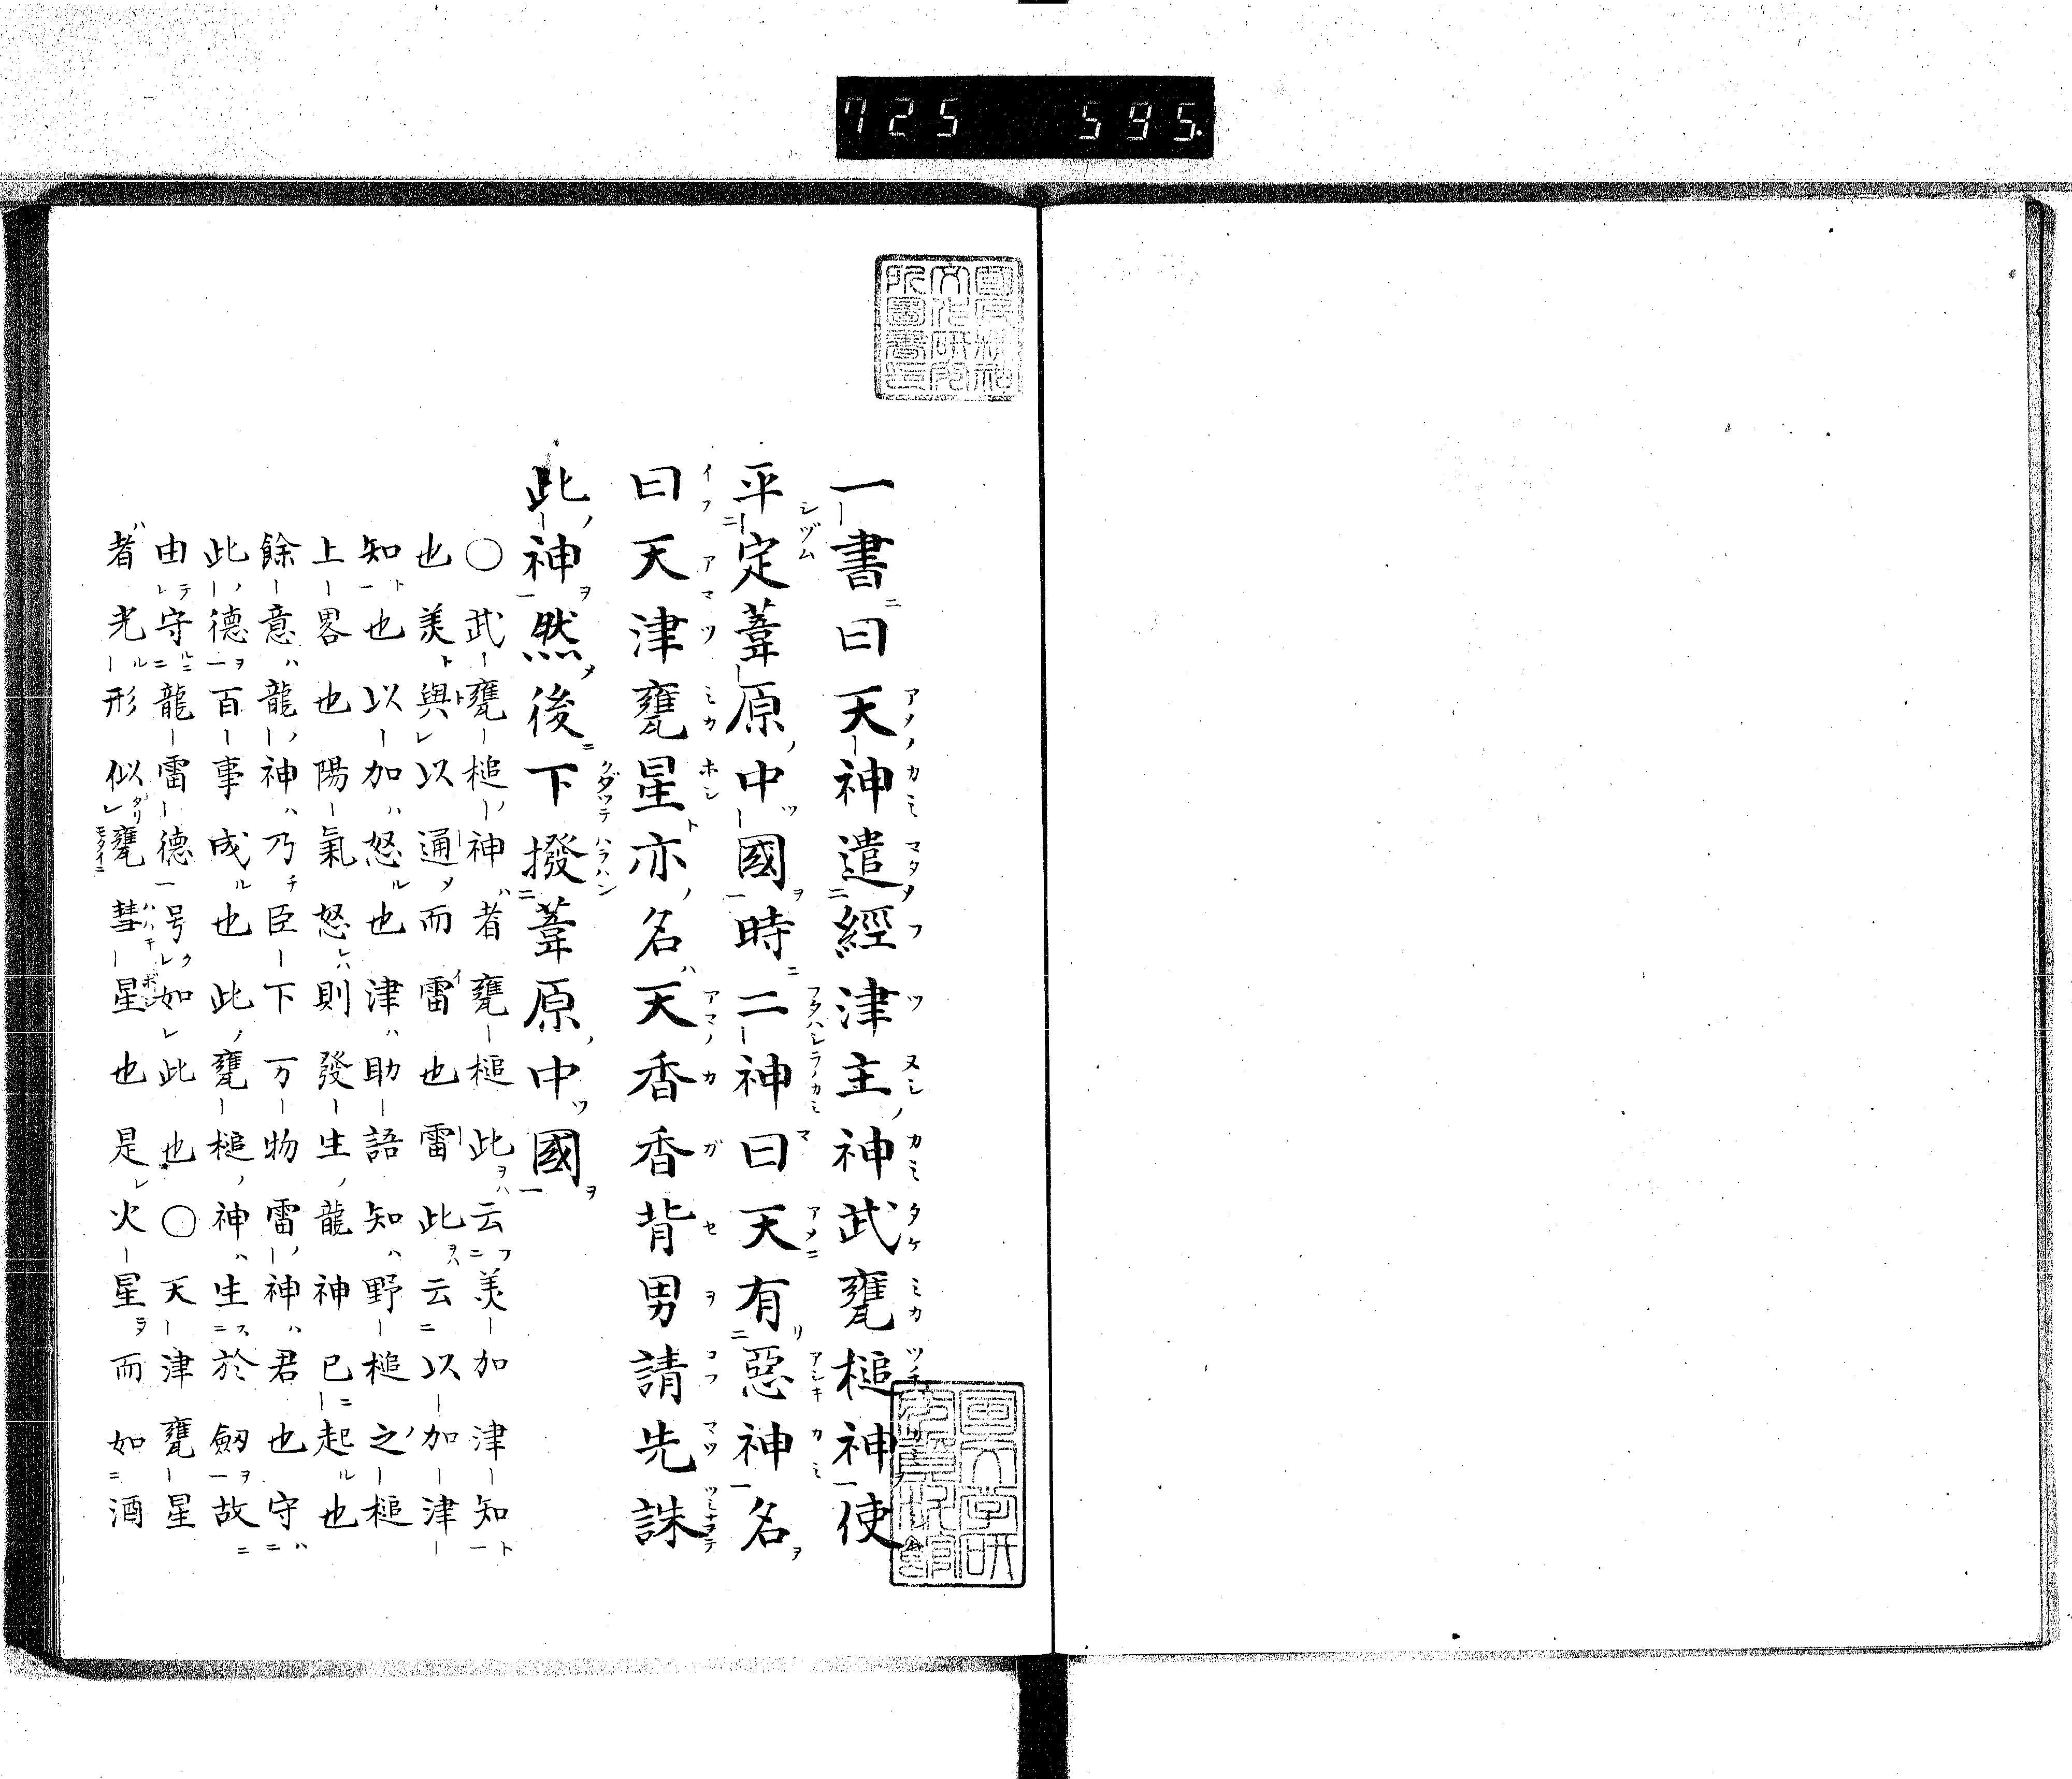 725 595.
一書曰天神遣經津主神武甕槌神使
平定葦原中國時二神曰天有惡神名
曰天津甕星亦名天香香背男請先誅
此神然後下撥葦原中國
○武甕槌神者甕槌此云美加津知
也美與以通而雷也雷此云以加津
知也以加怒也津助語知野槌之槌
上畧也陽氣怒則發生龍神已起也
餘意龍神乃臣下万物雷神君也守
此德百事成也此甕槌神生於劔故
由守龍雷德号如此也○天津甕星
者光形似甕彗星也是火星而如酒